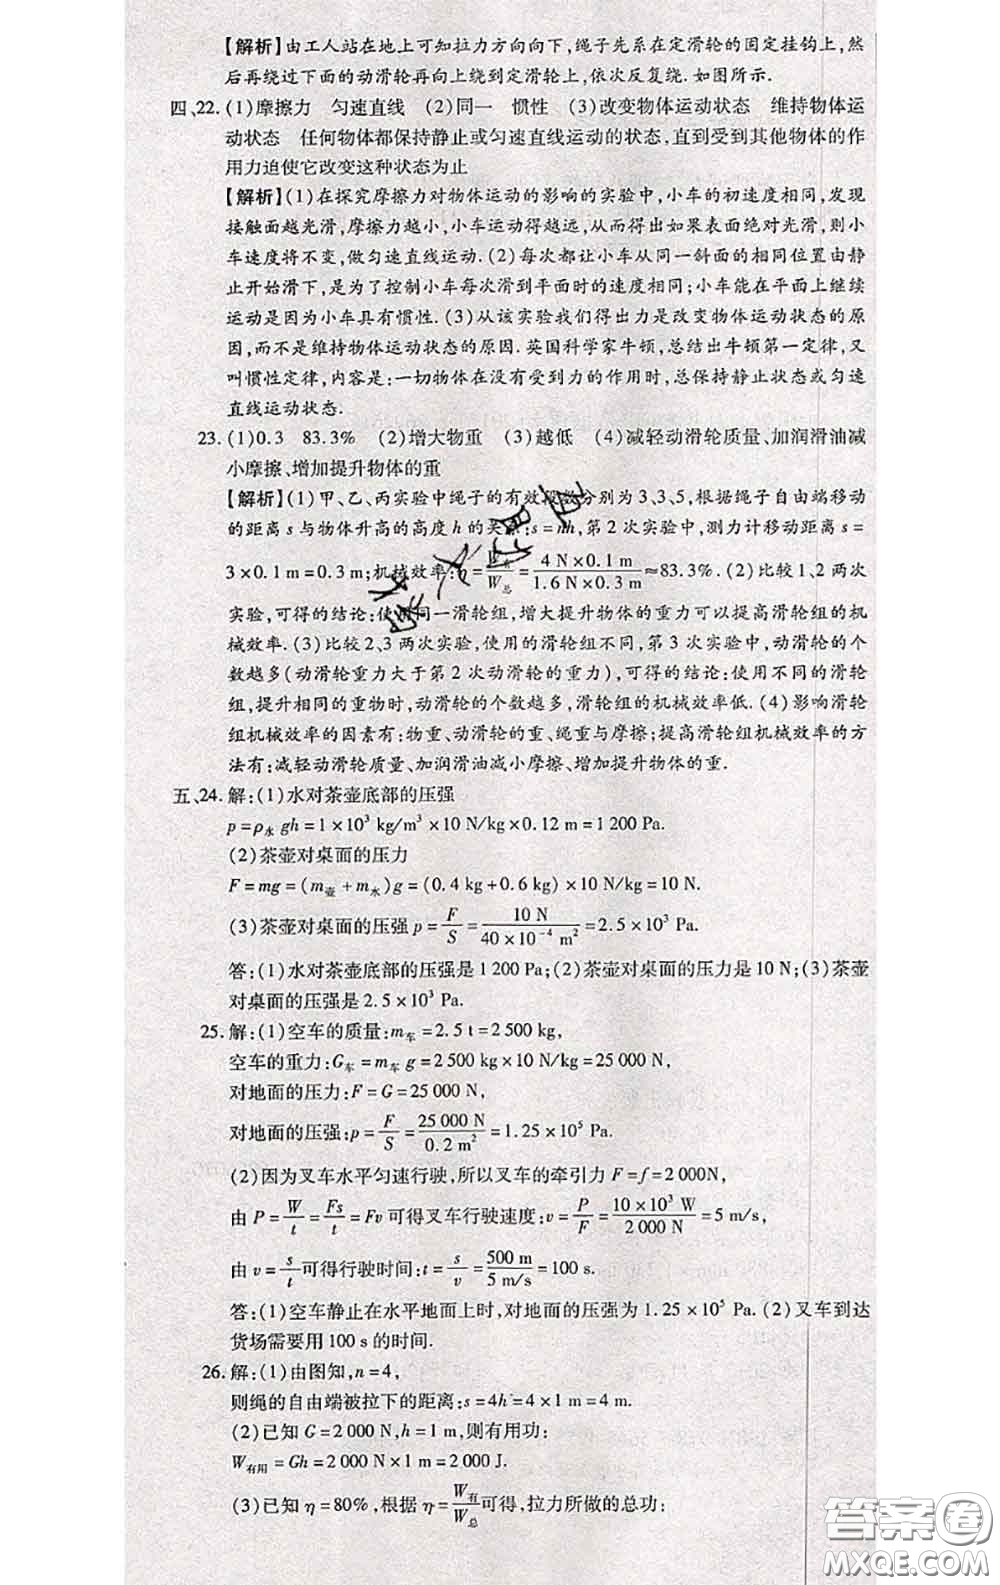 【解析】由工人站在地上可知拉力方向向下,绳子先系在定滑轮的固定挂钩上,然
后再绕过下面的动滑轮再向上绕到定滑轮上,依次反复绕. 如图所示.
四、22. (1)摩擦力 匀速直线 (2)同一 惯性 (3)改变物体运动状态 维持物体运
动状态 任何物体都保持静止或匀速直线运动的状态,直到受到其他物体的作
用力迫使它改变这种状态为止
【解析】(1)在探究摩擦力对物体运动的影响的实验中,小车的初速度相同,发现
接触面越光滑,摩擦力越小,小车运动得越远,从而得出如果表面绝对光滑,则小
车速度将不变,做匀速直线运动. (2)每次都让小车从同一斜面的相同位置由静
止开始滑下,是为了控制小车每次滑到平面时的速度相同;小车能在平面上继续
运动是因为小车具有惯性. (3)从该实验我们得出力是改变物体运动状态的原
因,而不是维持物体运动状态的原因. 英国科学家牛顿,总结出牛顿第一定律,又
叫惯性定律,内容是:一切物体在没有受到力的作用时,总保持静止状态或匀速
直线运动状态.
23. (1)0.3 83.3% (2)增大物重 (3)越低 (4)减轻动滑轮质量、加润滑油减
小摩擦、增加提升物体的重
【解析】(1)甲、乙、丙实验中绳子的有效段数分别为 3、3、5,根据绳子自由端移动
的距离 s 与物体升高的高度 h 的关系:s = nh,第 2 次实验中,测力计移动距离 s =
3×0.1 m = 0.3 m;机械效率:η = W有/W总 = 4 N×0.1 m/1.6 N×0.3 m ≈ 83.3%. (2)比较1、2 两次
实验,可得的结论:使用同一滑轮组,增大提升物体的重力可以提高滑轮组的机
械效率. (3)比较2、3 两次实验,使用的滑轮组不同,第 3 次实验中,动滑轮的个
数越多(动滑轮重力大于第 2 次动滑轮的重力),可得的结论:使用不同的滑轮
组,提升相同的重物时,动滑轮的个数越多,滑轮组的机械效率低. (4)影响滑轮
组机械效率的因素有:物重、动滑轮的重、绳重与摩擦;提高滑轮组机械效率的方
法有:减轻动滑轮质量、加润滑油减小摩擦、增加提升物体的重.
五、24. 解:(1)水对茶壶底部的压强
p = ρ水 gh = 1×10³ kg/m³ ×10 N/kg×0.12 m = 1 200 Pa.
(2)茶壶对桌面的压力
F = mg = (m壶 + m水)g = (0.4 kg+0.6 kg) ×10 N/kg = 10 N.
(3)茶壶对桌面的压强 p = F/S = 10 N/40×10⁻⁴ m² = 2.5×10³ Pa.
答:(1)水对茶壶底部的压强是 1 200 Pa;(2)茶壶对桌面的压力是 10 N;(3)茶壶
对桌面的压强是 2.5×10³ Pa.
25. 解:(1)空车的质量:m车 = 2.5 t = 2 500 kg,
空车的重力:G车 = m车 g = 2 500 kg×10 N/kg = 25 000 N,
对地面的压力:F = G = 25 000 N,
对地面的压强:p = F/S = 25 000 N/0.2 m² = 1.25×10⁵ Pa.
(2)因为叉车水平匀速行驶,所以叉车的牵引力 F = f = 2 000N,
由 P = W/t = Fs/t = Fv 可得叉车行驶速度:v = P/F = 10×10³ W/2 000 N = 5 m/s,
由 v = s/t 可得行驶时间:t = s/v = 500 m/5 m/s = 100 s.
答:(1)空车静止在水平地面上时,对地面的压强为 1.25×10⁵ Pa. (2)叉车到达
货场需要用 100 s 的时间.
26. 解:(1)由图知,n = 4,
则绳的自由端被拉下的距离:s = 4h = 4×1 m = 4 m.
(2)已知 G = 2 000 N,h = 1 m,则有用功:
W有用 = Gh = 2 000 N×1 m = 2 000 J.
(3)已知 η = 80%,根据 η = W有/W总 可得,拉力所做的总功:
答案圈
MXQE.COM